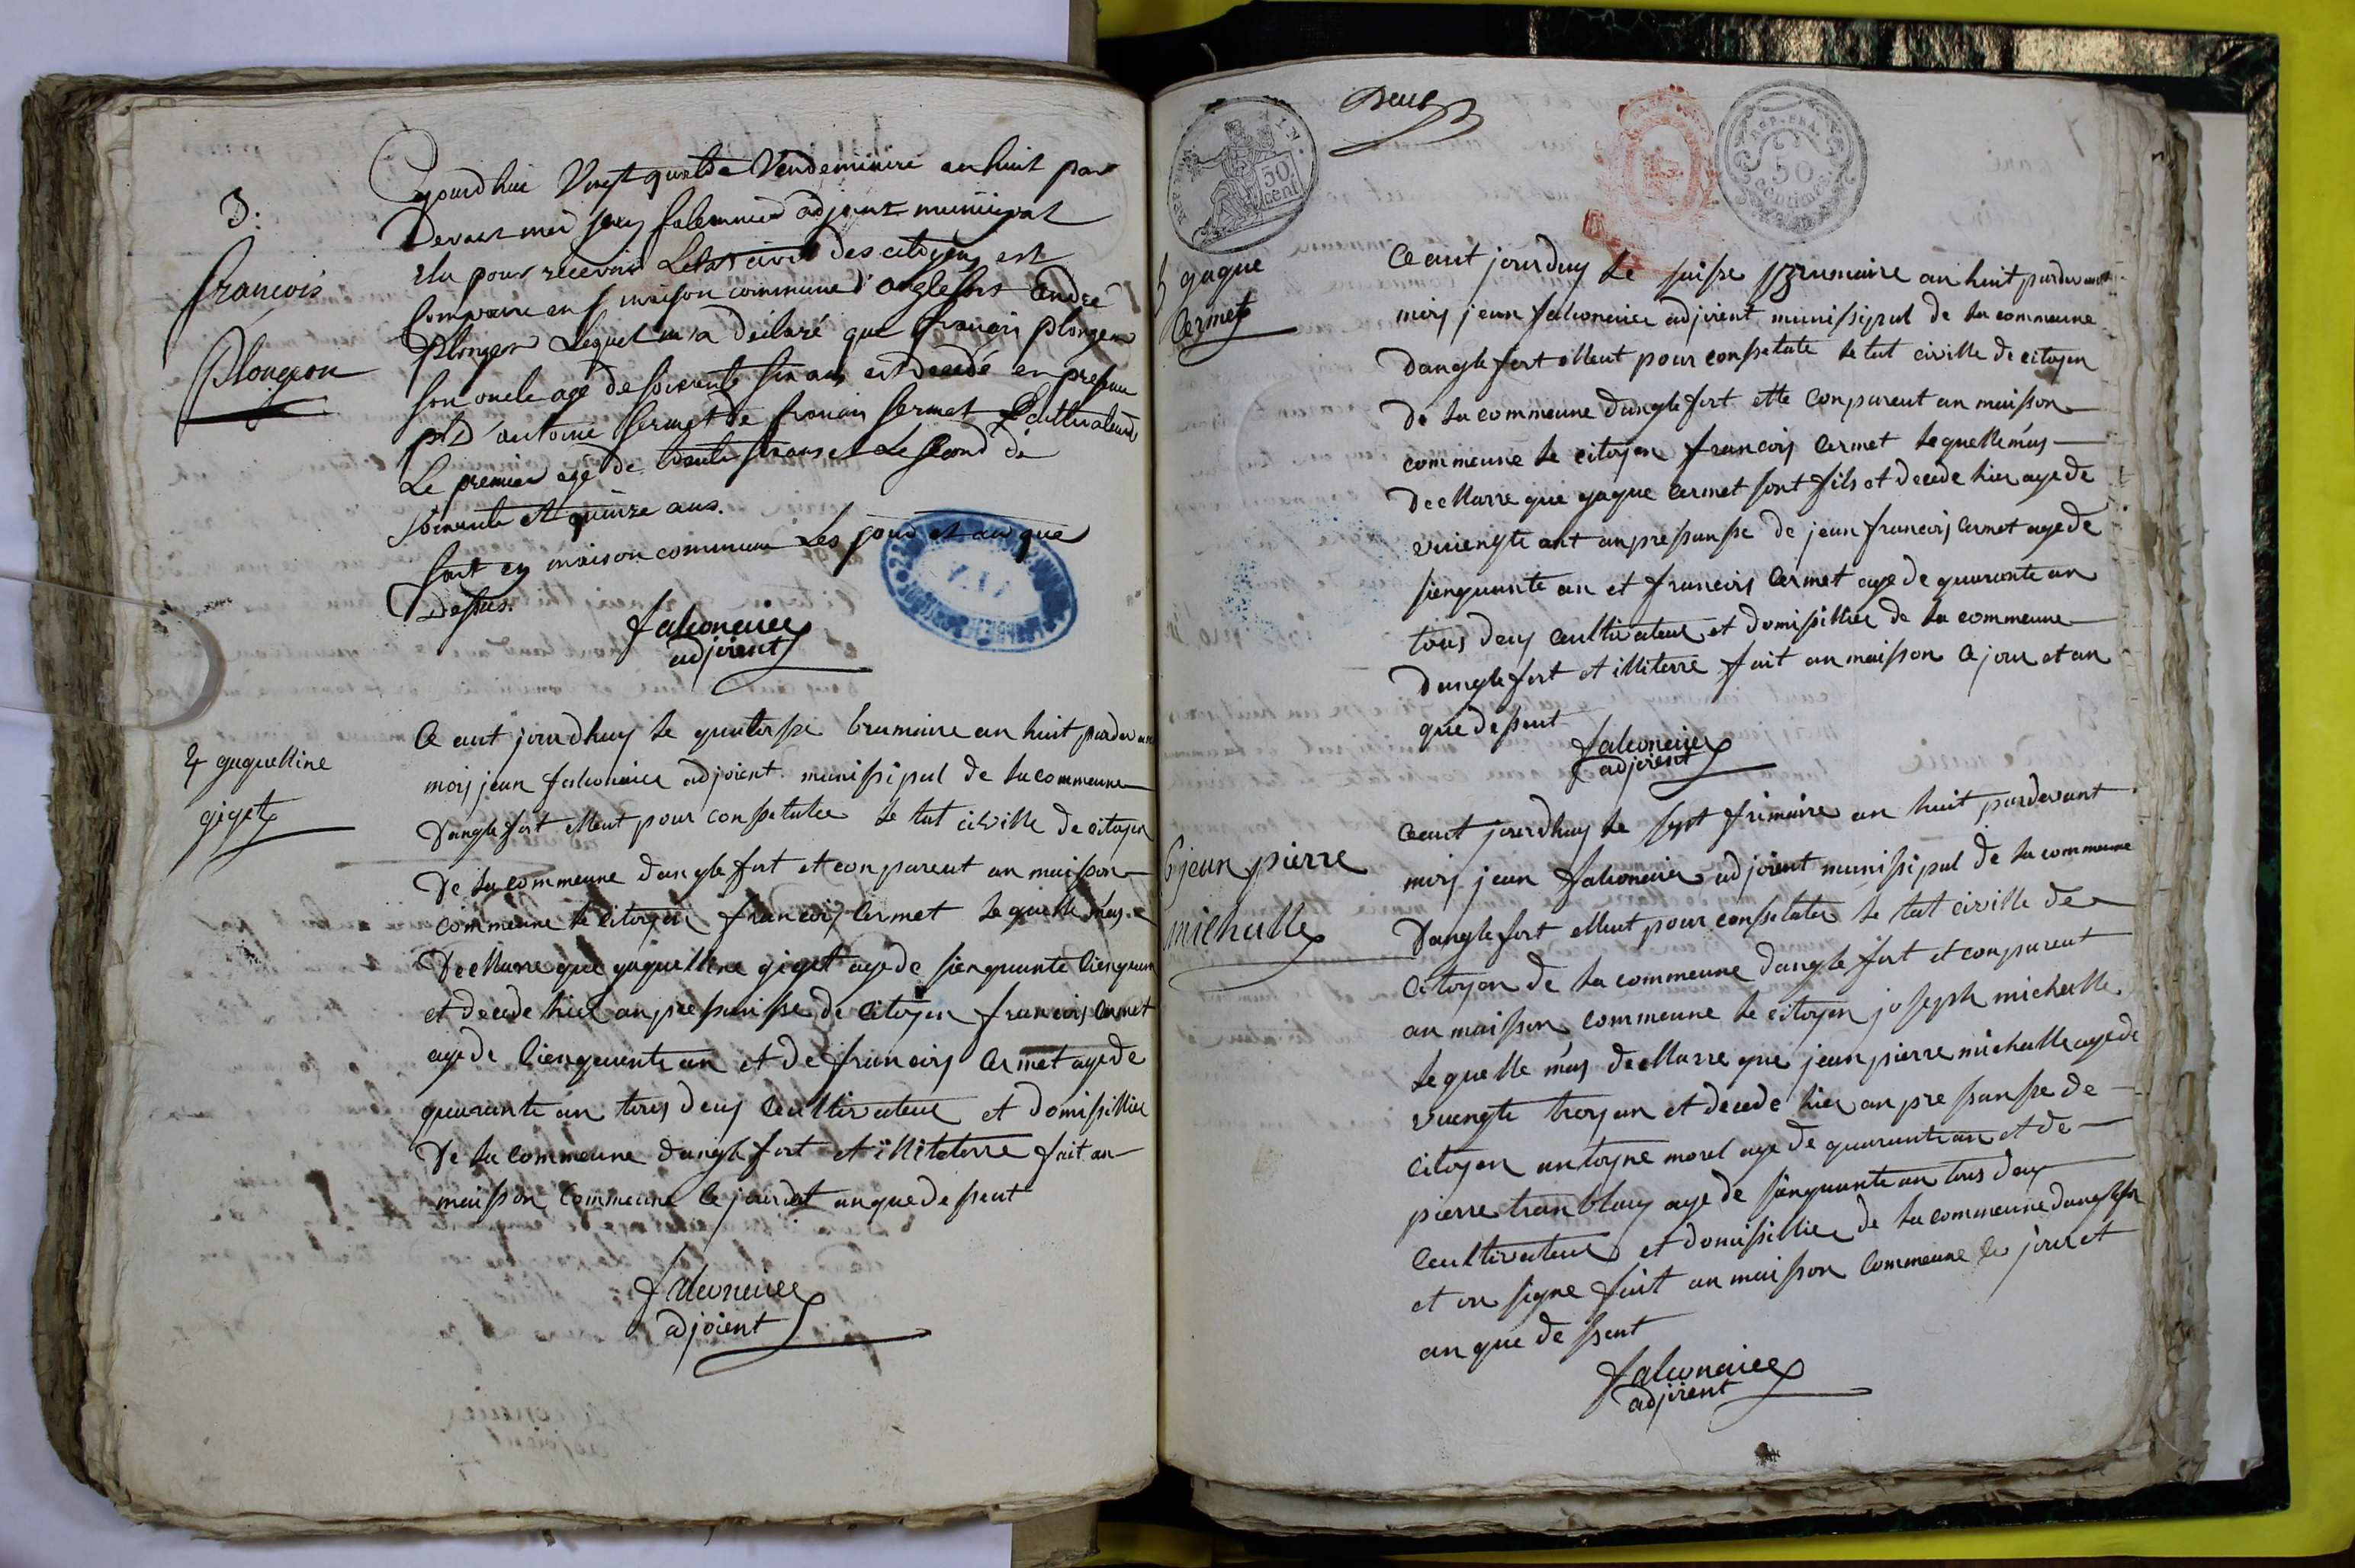 3.
francois
Plongeon
Cejourdhui Vingt quatre Vendemiaire an huit par
Devant moi jean falconnier adjoint municipal
Elu pour recevoir Letat civil des citoyens est
Comparu en maison commune d'anglefort andré
Plongeon Lequel m'a déclaré que francois plongeon
son oncle agé de soixante six ans est decedé en presence
d'antoine Sermet de francois Sermet Cultivateurs
Le premier agé de trente trois ans et Le second de
soixante et quinze ans.
fait en maison commune Les jour et an que
Dessus.
falconnier
adjoient
4 gaquelline
giget
Ce aut jourdhuy le quatorsse brumaire an huit pardevant
moij jean falconnier adjoient munissipal de la commeune
Danglefort elleut pour conssetatee le tat civille de citoyen
De la commeune danglefort et conpareut an maisson
commeune le citoyen francois Cermet le quelle m'as
Decllarre que gaquelline giget age de sienquante cienq an
et decede hier anpressansse de citoyen francois Cermet
age de cienquante an et de francois Cermet age de
quarante an tous deuy Ceultivateur et domissillier
De la commeune danglefort et illiterre fait an
maisson Commeune le jour et an que de sseut
falconnier
adjoient
Deux
REP. FRA.
50
cent.
REP. FRA.
50
centimes
5 gaque
Cermet
Ceaut jourduy le saisse brumaire an huit pardevant
moij jean falconnier adjoient munissipal de la commeune
Danglefort elleut pour conssetate le tat civille de citoyen
de la commeune danglefort ette conpareut an maisson
commeune le citoyen francois Cermet le quelle m'as
Decllarre que gaque Cermet sont fils et decede hier age de
vuiengte ant anpressansse de jean francois Cermet age de
sienquante an et francois Cermet age de quarante an
tous deuy Ceultivateur et domissillier de la commeune
danglefort et illiterre fait an maisson Ce jour et an
que de sseut
falconnier
adjoient
6 jean pierre
michalle
Ceaut jourdhuy le sept frimaire an huit pardevant
moij jean falconnier adjoient munissipal de la commeune
Danglefort elleut pour conssetater le tat civille de
Citoyen de la commeune danglefort et conpareut
an maisson commeune le citoyen joseph michalle
le quelle m'as decllarre que jean pierre michalle age de
vuengte troy an et decede hier an pressansse de
Citoyen antoyne morel age de quarante an et de
pierre tranblay age de sinquante an tous deuy
Ceultivateur et domissillier de la commeune danglefor
et on signe fait an maisson Commeune le jour et
an que de sseut
falconnier
adjoient